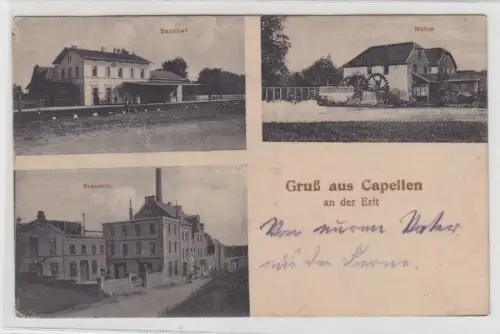 Bahnhof
Mühle
Brauerei
Gruß aus Capellen
an der Erft
Von eurem Vater
aus der